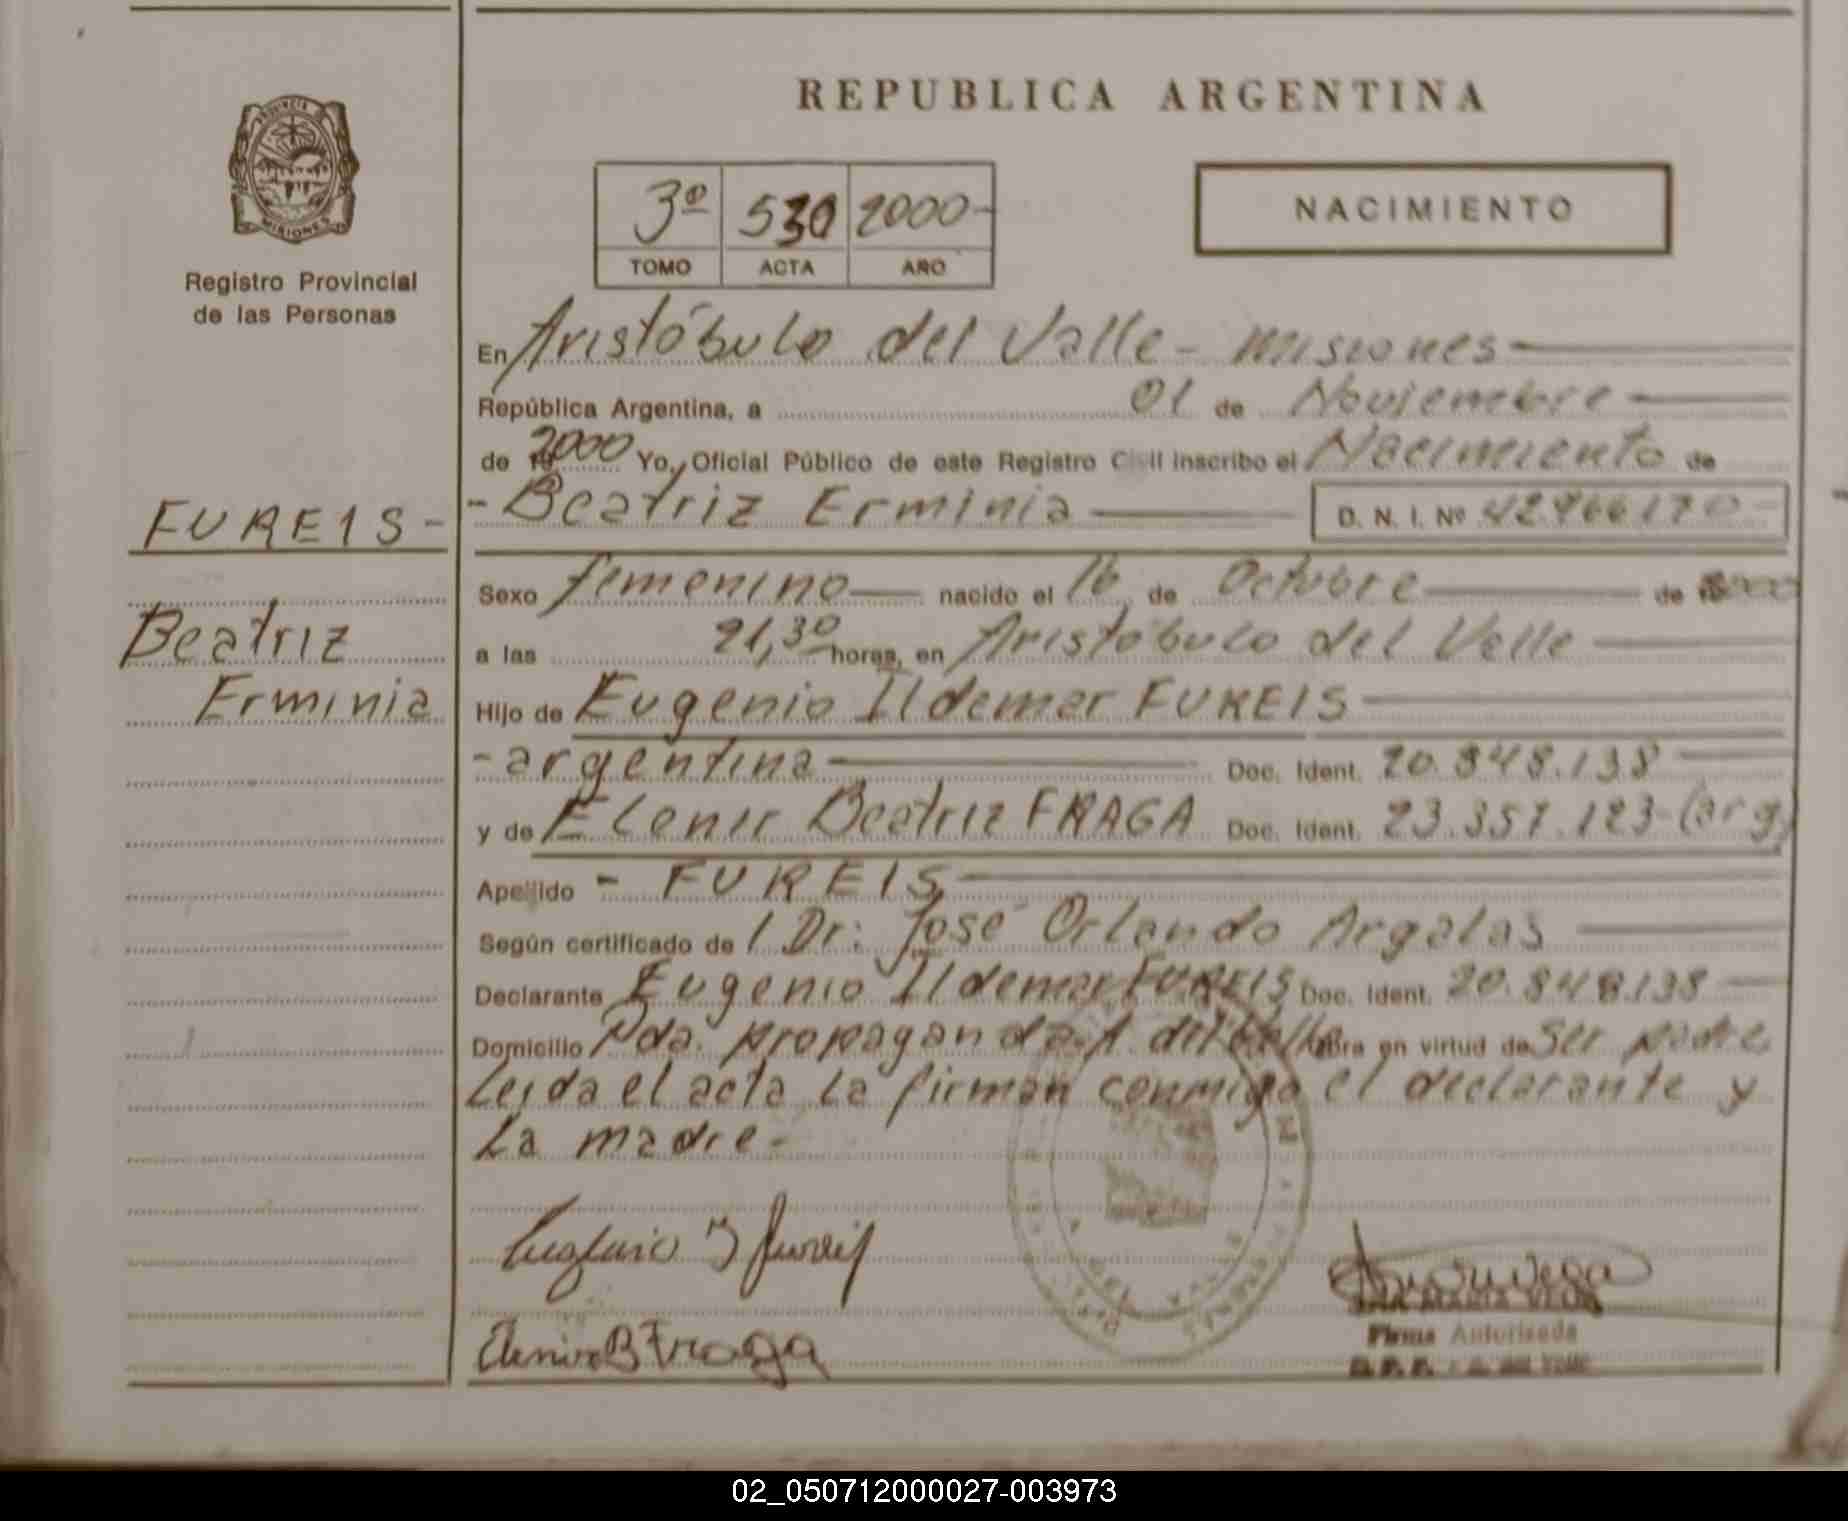 REPUBLICA ARGENTINA
PROVINCIA
MISIONES
Registro Provincial
de las Personas
3º 530 2000-
TOMO ACTA AÑO
NACIMIENTO
En Aristóbulo del Valle - Misiones
República Argentina, a 01 de Noviembre
de 2000 Yo, Oficial Público de este Registro Civil inscribo el Nacimiento de
FUREIS -
- Beatriz Erminia D. N. I. Nº 42966170-
Sexo femenino nacido el 16 de Octubre de 2000
Beatriz
a las 21,30 horas, en Aristóbulo del Valle
Erminia
Hijo de Eugenio Ildemar FUREIS
- argentina Doc. Ident. 20.848.138
y de Elenir Beatriz FRAGA Doc. Ident. 23.357.123-(arg)
Apellido - FUREIS
Según certificado de / Dr: José Orlando Argalas
Declarante Eugenio Ildemar FUREIS Doc. Ident. 20.848.138
Domicilio Pda. propaganda A. del Valle obra en virtud de ser padre,
Leida el acta la firman conmigo el declarante y
La madre -
Eugenio I Fureis
Elenir B Fraga
ANA MARIA VEGA
Firma Autorizada
02_050712000027-003973